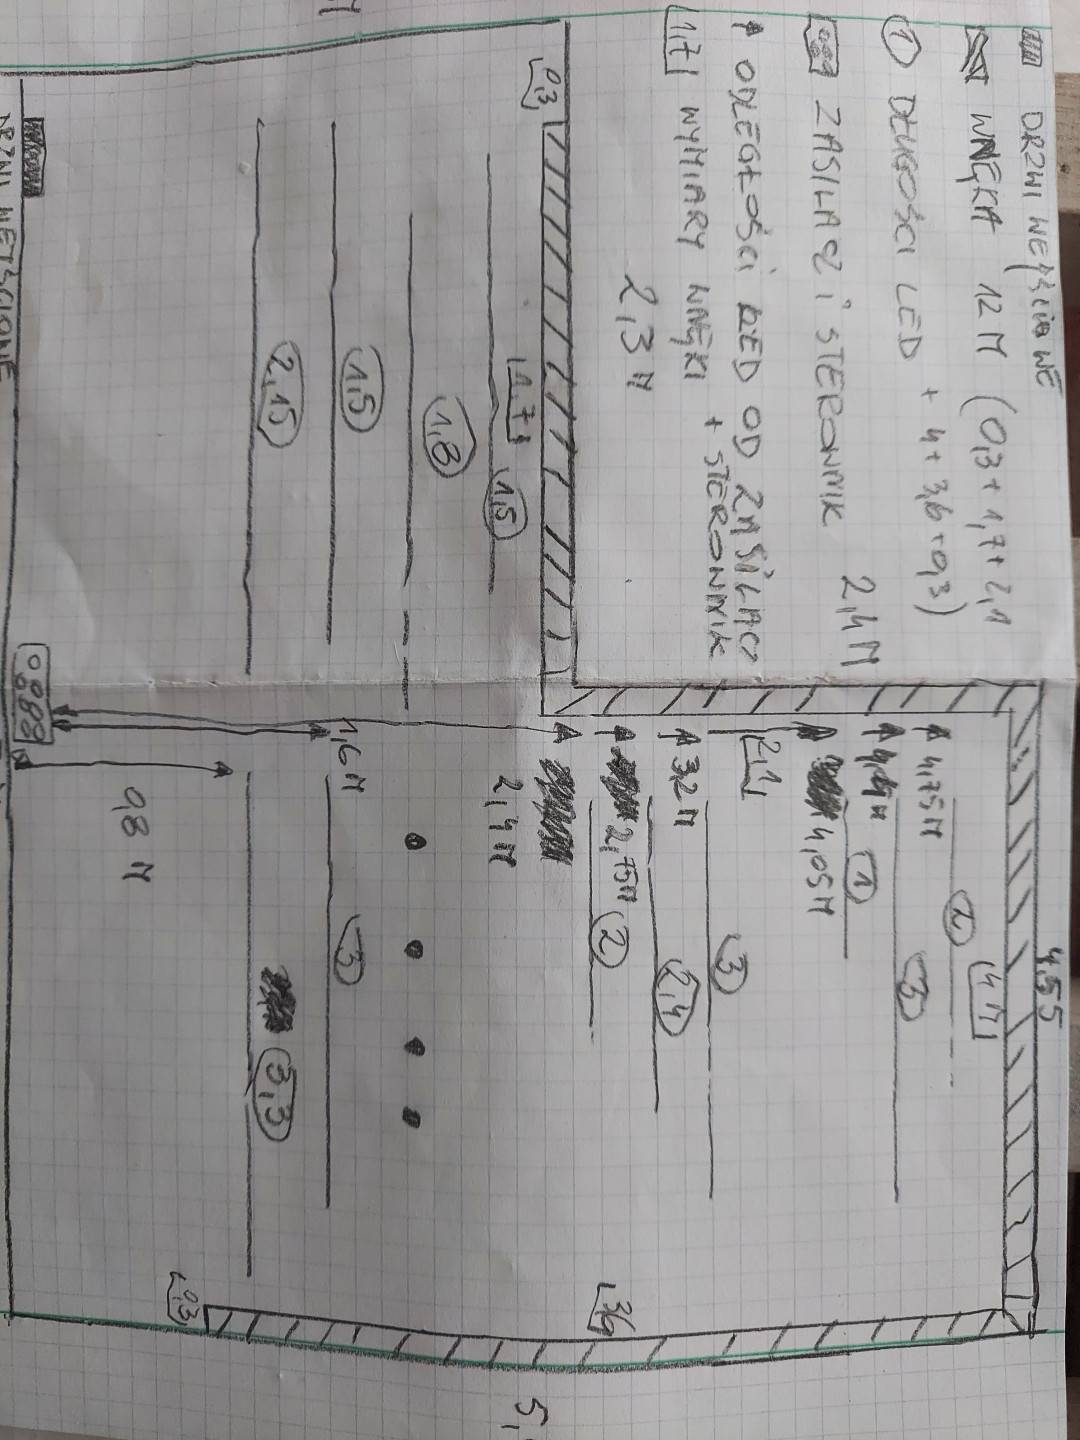 DRZWI WEJŚCIOWE
WNĘKA 12 M (0,3 + 1,7 + 2,1
+ 4 + 3,6 + 0,3)
① DŁUGOŚCI LED
ZASILACZ I STEROWNIK
2,4 M
ODLEGŁOŚCI LED OD ZASILACZ
+ STEROWNIK
1,7 WYMIARY WNĘKI
2,3 M
0,3
1,7
1,5
1,8
1,5
2,15
DRZWI WEJŚCIOWE
4,55
4 M
2
4,75 M
3
4,4 M
1
4,05 M
2,1
3
3,2 M
2,4
2,75 M
2
2,4 M
1,6 M
3
3,3
0,8 M
3,6
0,3
5,